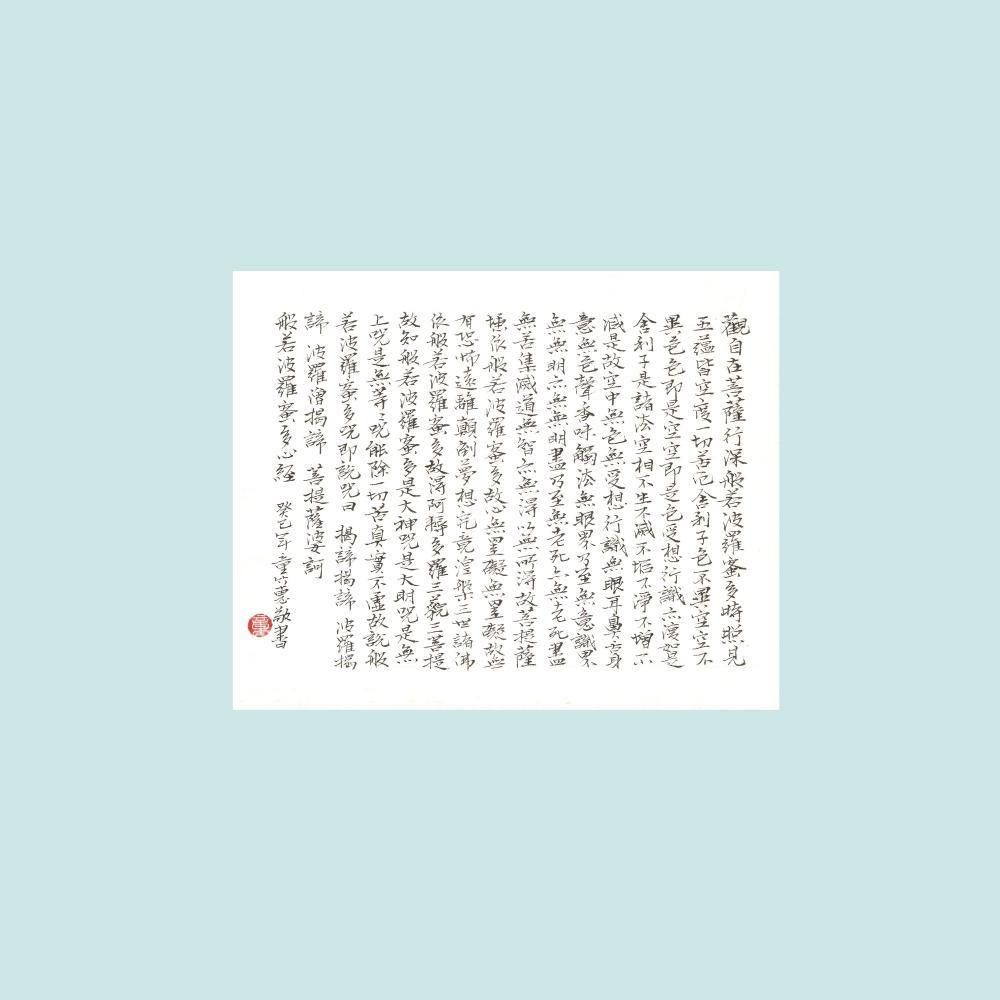 觀自在菩薩行深般若波羅蜜多時照見
五蘊皆空度一切苦厄舍利子色不異空空不
異色色即是空空即是色受想行識亦復如是
舍利子是諸法空相不生不滅不垢不淨不增不
減是故空中無色無受想行識無眼耳鼻舌身
意無色聲香味觸法無眼界乃至無意識界
無無明亦無無明盡乃至無老死亦無老死盡
無苦集滅道無智亦無得以無所得故菩提薩
埵依般若波羅蜜多故心無罣礙無罣礙故無
有恐怖遠離顛倒夢想究竟涅槃三世諸佛
依般若波羅蜜多故得阿耨多羅三藐三菩提
故知般若波羅蜜多是大神咒是大明咒是無
上咒是無等等咒能除一切苦真實不虛故說般
若波羅蜜多咒即說咒曰 揭諦揭諦 波羅揭
諦 波羅僧揭諦 菩提薩婆訶
般若波羅蜜多心經 癸巳年童蕙敬書